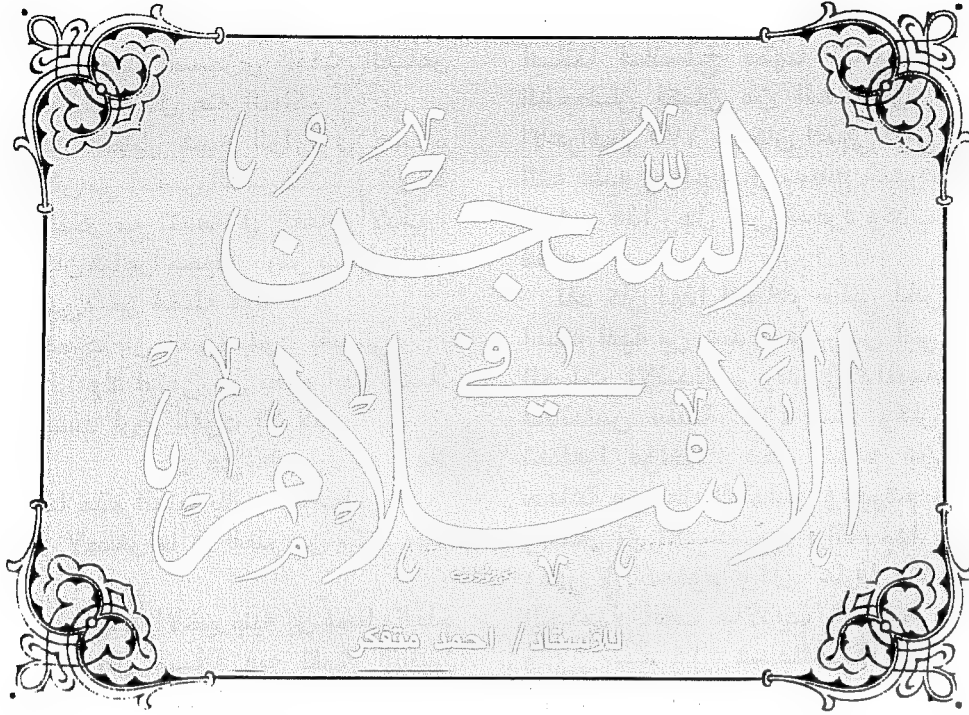 السّجن
في
الأسلام
للأستاذ / احمد متفكر